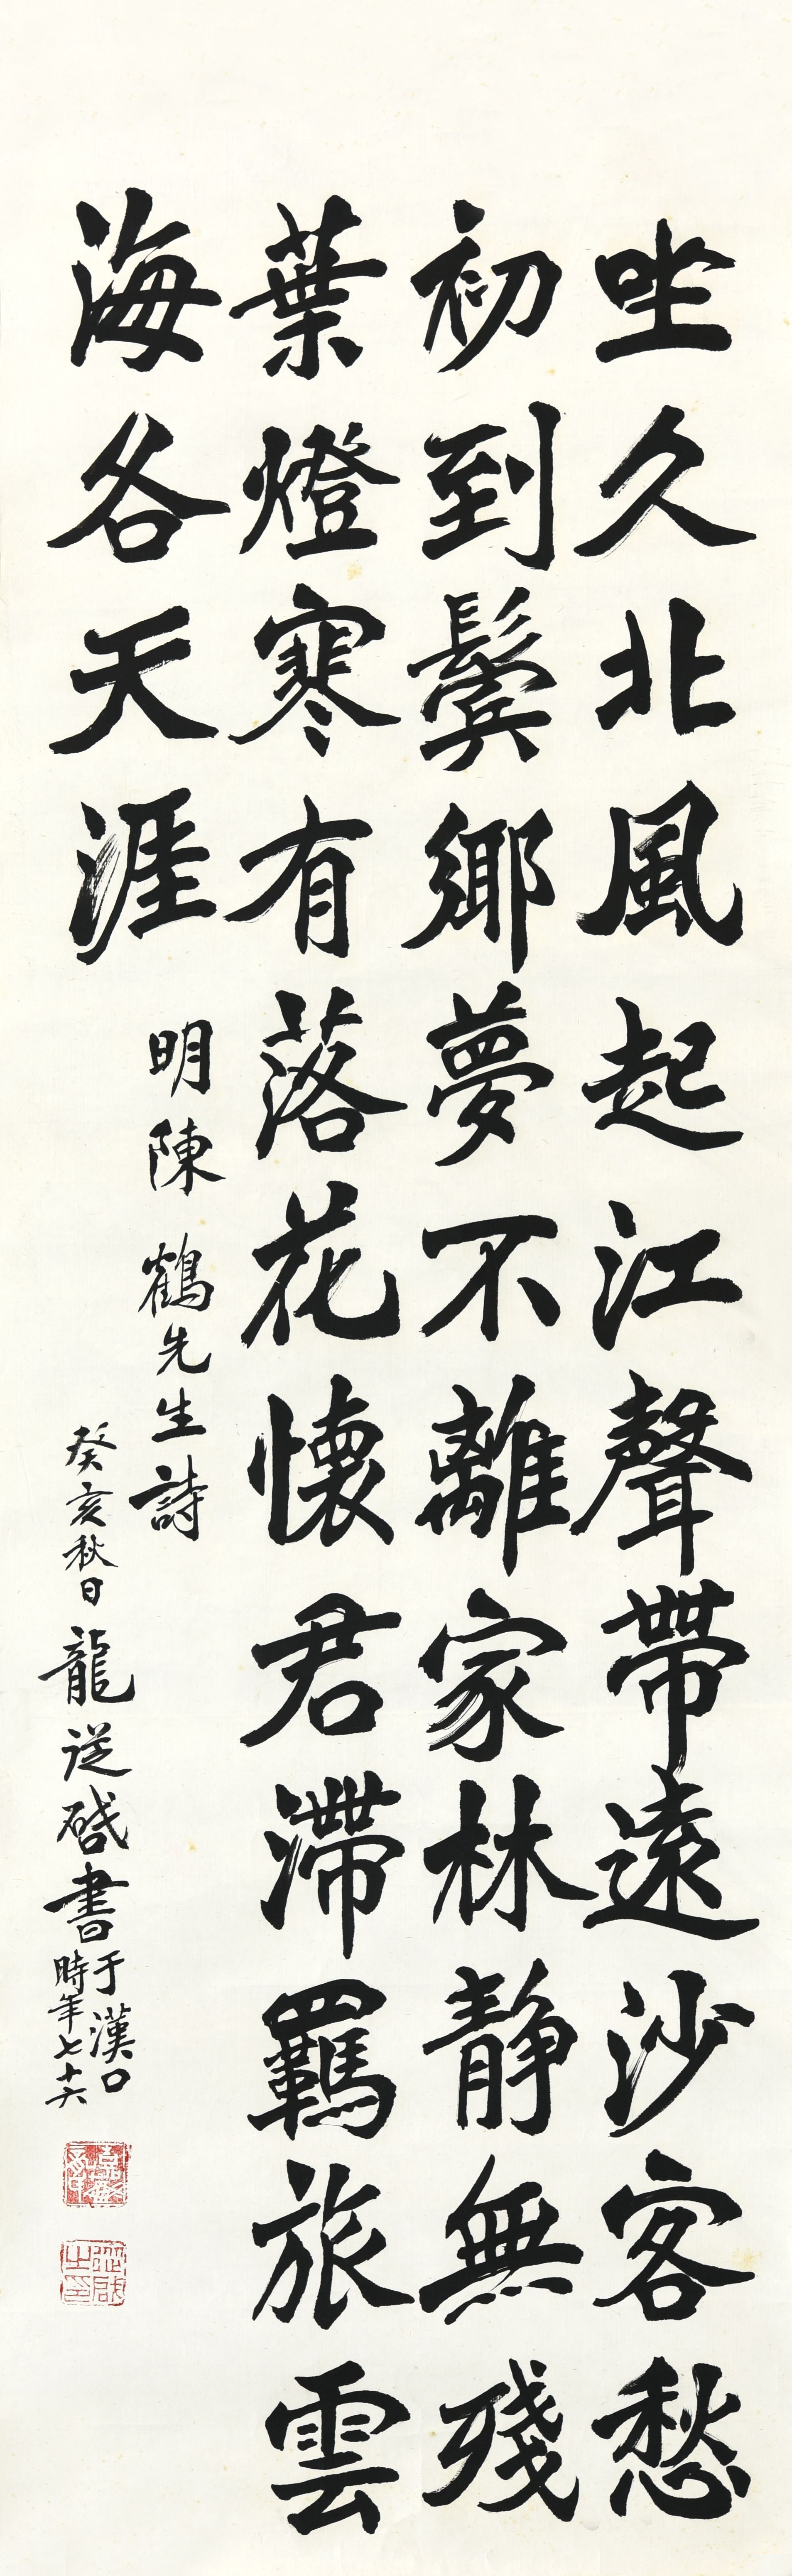 坐久北風起江聲帶遠沙客愁
初到鬢鄉夢不離家林靜無殘
葉燈寒有落花懷君滯羈旅雲
海各天涯
明陳鶴先生詩
癸亥秋日龍從啟書于漢口
時年七十六
從啟之印